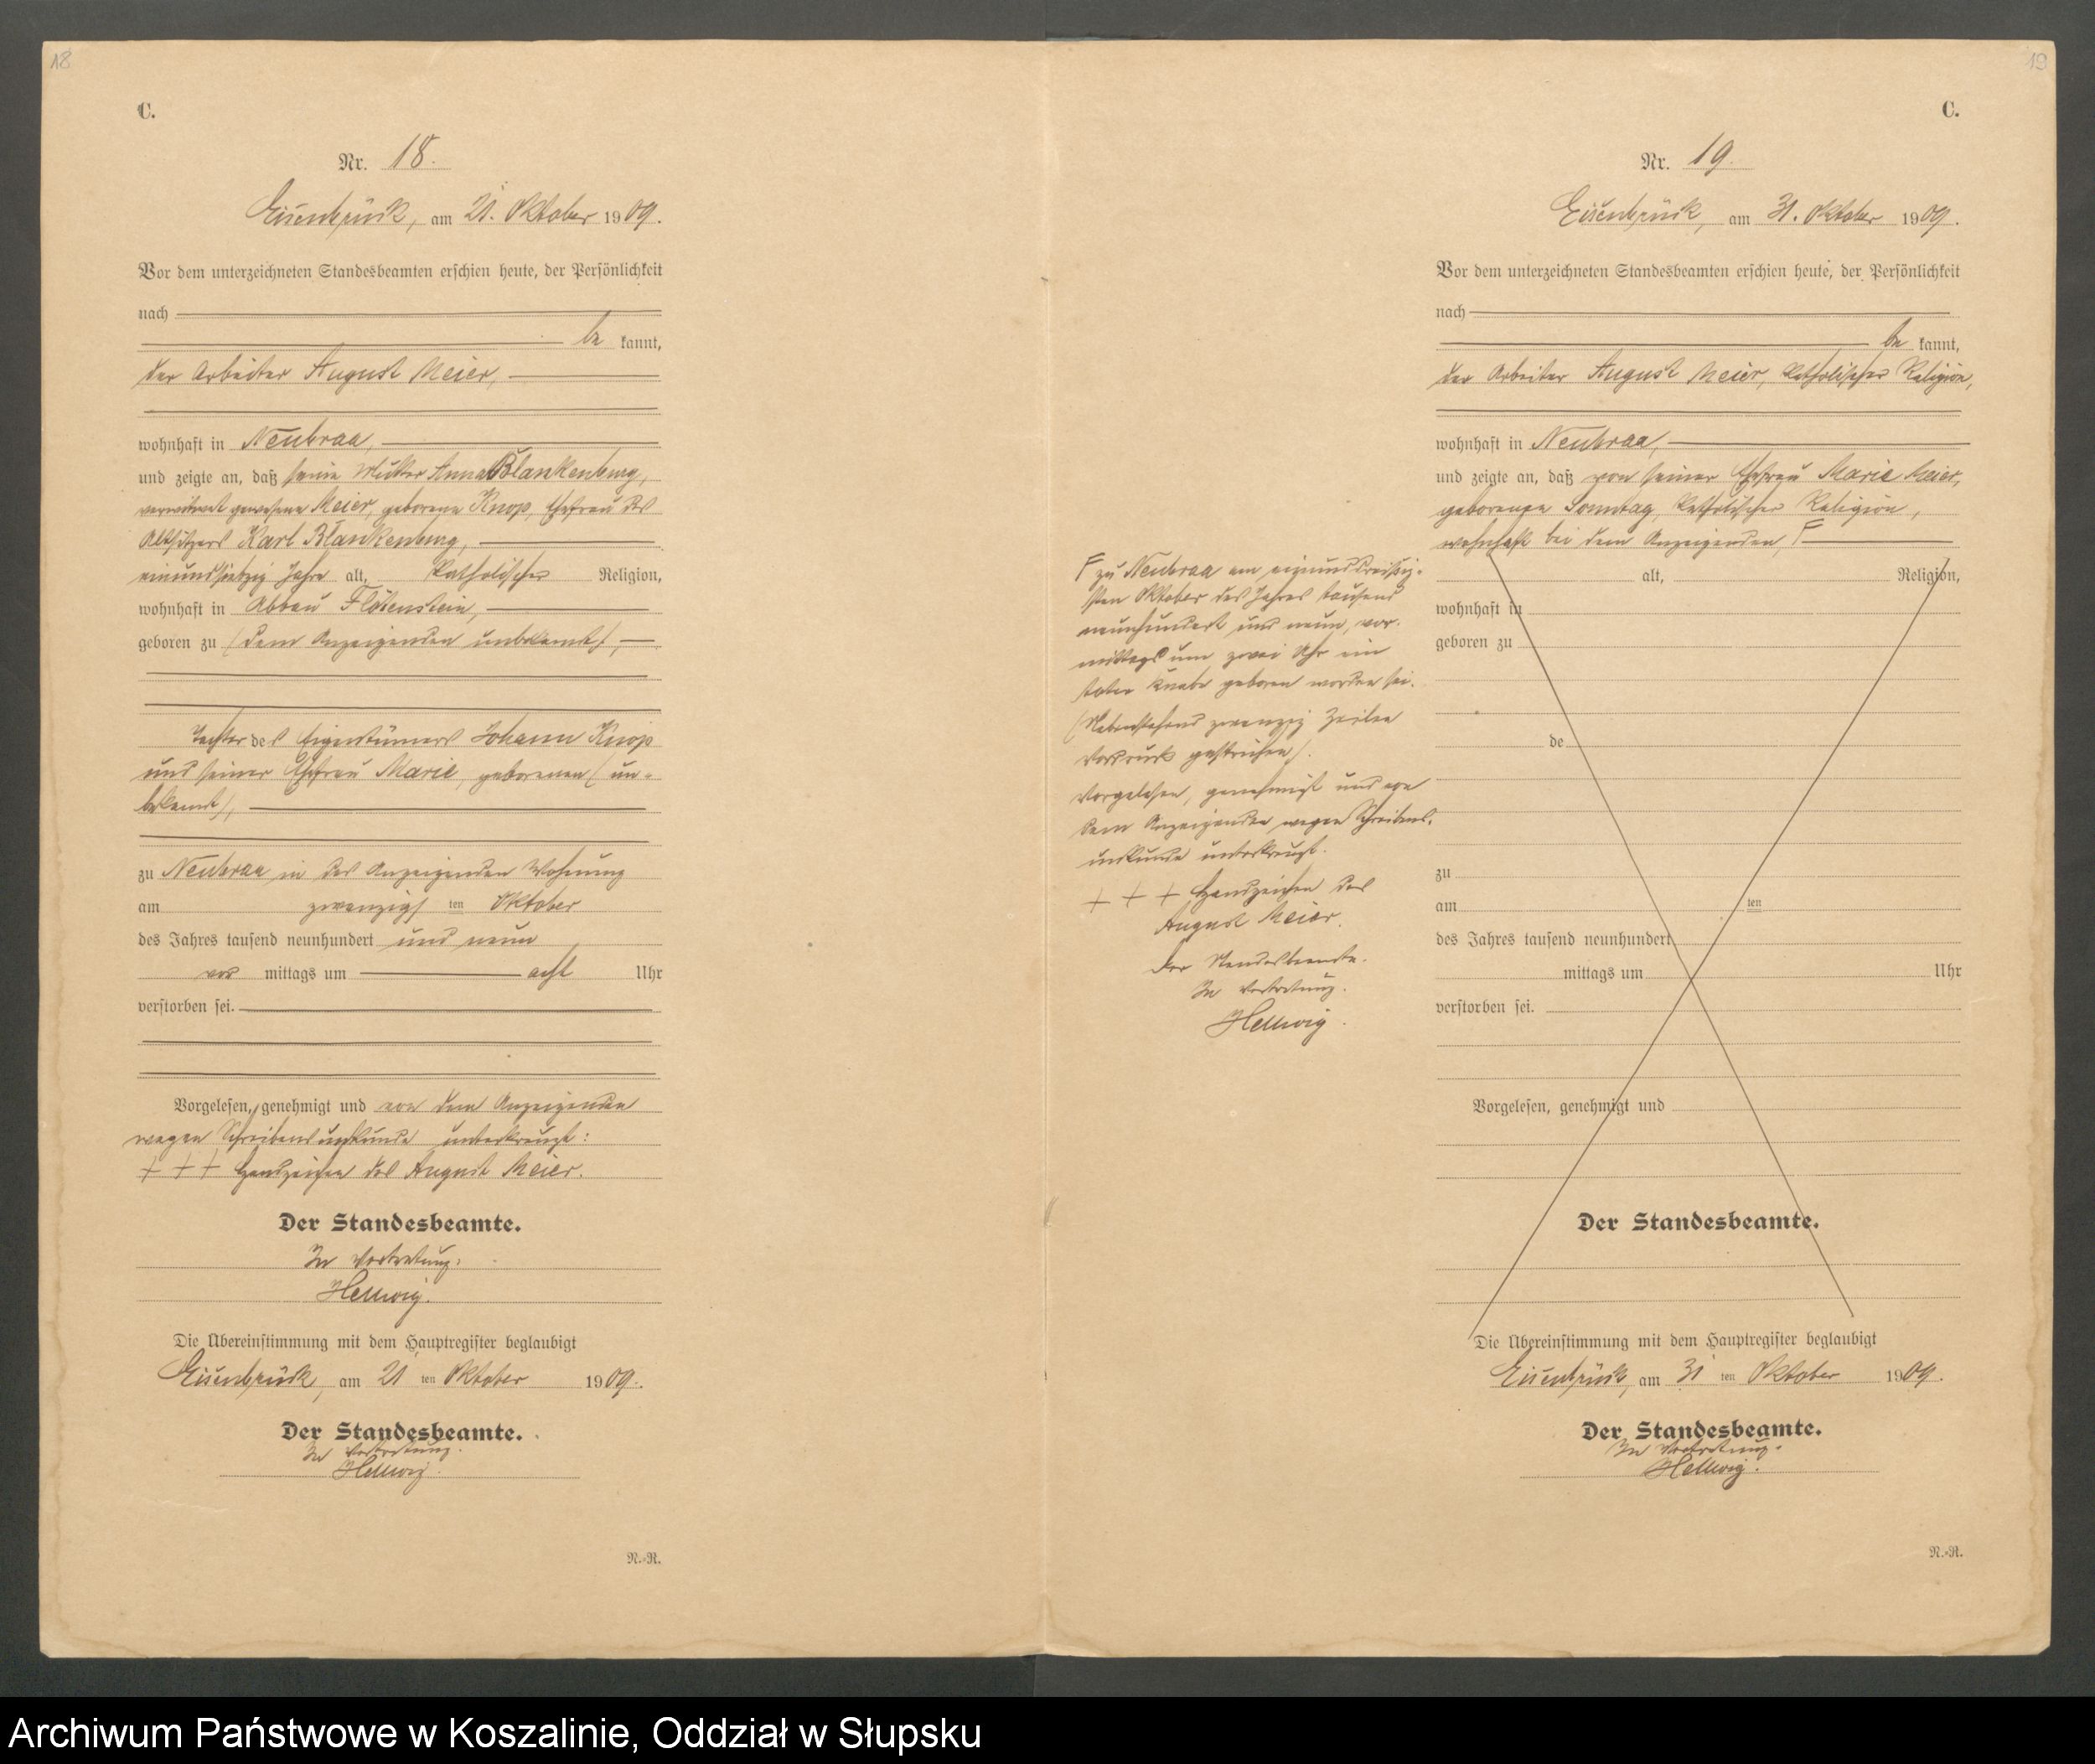 18
C.
Nr. 18.
Eisenbrück, am 21. Oktober 1909.
Vor dem unterzeichneten Standesbeamten erschien heute, der Persönlichkeit
nach
be kannt,
der Arbeiter August Meier,
wohnhaft in Neubraa,
und zeigte an, daß seine Mutter Anna Blankenburg,
verwitwet gewesene Meier, geborene Knop, Ehefrau des
Altsitzers Karl Blankenburg,
einundsiebzig Jahre alt, katholischer Religion,
wohnhaft in Abbau Flötenstein,
geboren zu (dem Anzeigenden unbekannt),
Tochter des Eigentümers Johann Knop
und seiner Ehefrau Marie, geborenen (un-
bekannt),
zu Neubraa in des Anzeigenden Wohnung
am zwanzigsten Oktober
des Jahres tausend neunhundert und neun
vor mittags um acht Uhr
verstorben sei.
Vorgelesen, genehmigt und von dem Anzeigenden
wegen Schreibensunkunde unterkreuzt:
+ + + Handzeichen des August Meier.
Der Standesbeamte.
In Vertretung:
Hellwig.
Die Übereinstimmung mit dem Hauptregister beglaubigt
Eisenbrück, am 21 ten Oktober 1909.
Der Standesbeamte.
In Vertretung.
Hellwig.
N.-R.
19
C.
Nr. 19.
Eisenbrück, am 31. Oktober 1909.
Vor dem unterzeichneten Standesbeamten erschien heute, der Persönlichkeit
nach
be kannt,
der Arbeiter August Meier, katholischer Religion,
wohnhaft in Neubraa,
und zeigte an, daß von seiner Ehefrau Marie Meier,
geborenen Sonntag, katholischer Religion,
wohnhaft bei dem Anzeigenden, F
F zu Neubraa am einunddreißig-
sten Oktober des Jahres tausend
neunhundert und neun, vor-
mittags um zwei Uhr ein
toter Knabe geboren worden sei.
(Nebenstehend zwanzig Zeilen
Vordruck gestrichen).
Vorgelesen, genehmigt und von
dem Anzeigenden wegen Schreibens-
unkunde unterkreuzt.
+ + + Handzeichen des
August Meier.
Der Standesbeamte.
In Vertretung.
Hellwig.
alt, Religion,
wohnhaft in
geboren zu
de
zu
am ten
des Jahres tausend neunhundert
mittags um Uhr
verstorben sei.
Vorgelesen, genehmigt und
Der Standesbeamte.
Die Übereinstimmung mit dem Hauptregister beglaubigt
Eisenbrück, am 31 ten Oktober 1909.
Der Standesbeamte.
In Vertretung.
Hellwig.
N.-R.
Archiwum Państwowe w Koszalinie, Oddział w Słupsku